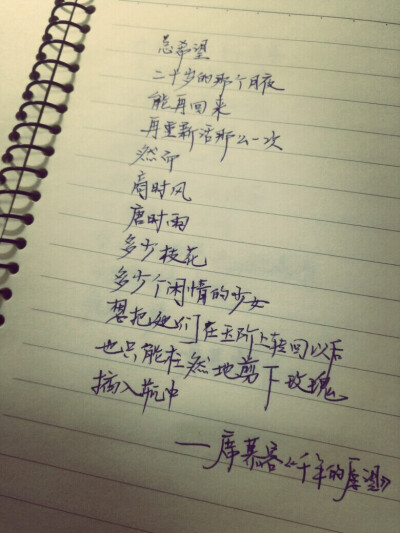 总希望
二十岁的那个月夜
能再回来
再重新活那么一次
然而
商时风
唐时雨
多少枝花
多少个闲情的少女
想把她们在玉阶上转回以后
也只能枉然地剪下玫瑰
插入瓶中
——席慕容《千年的愿望》